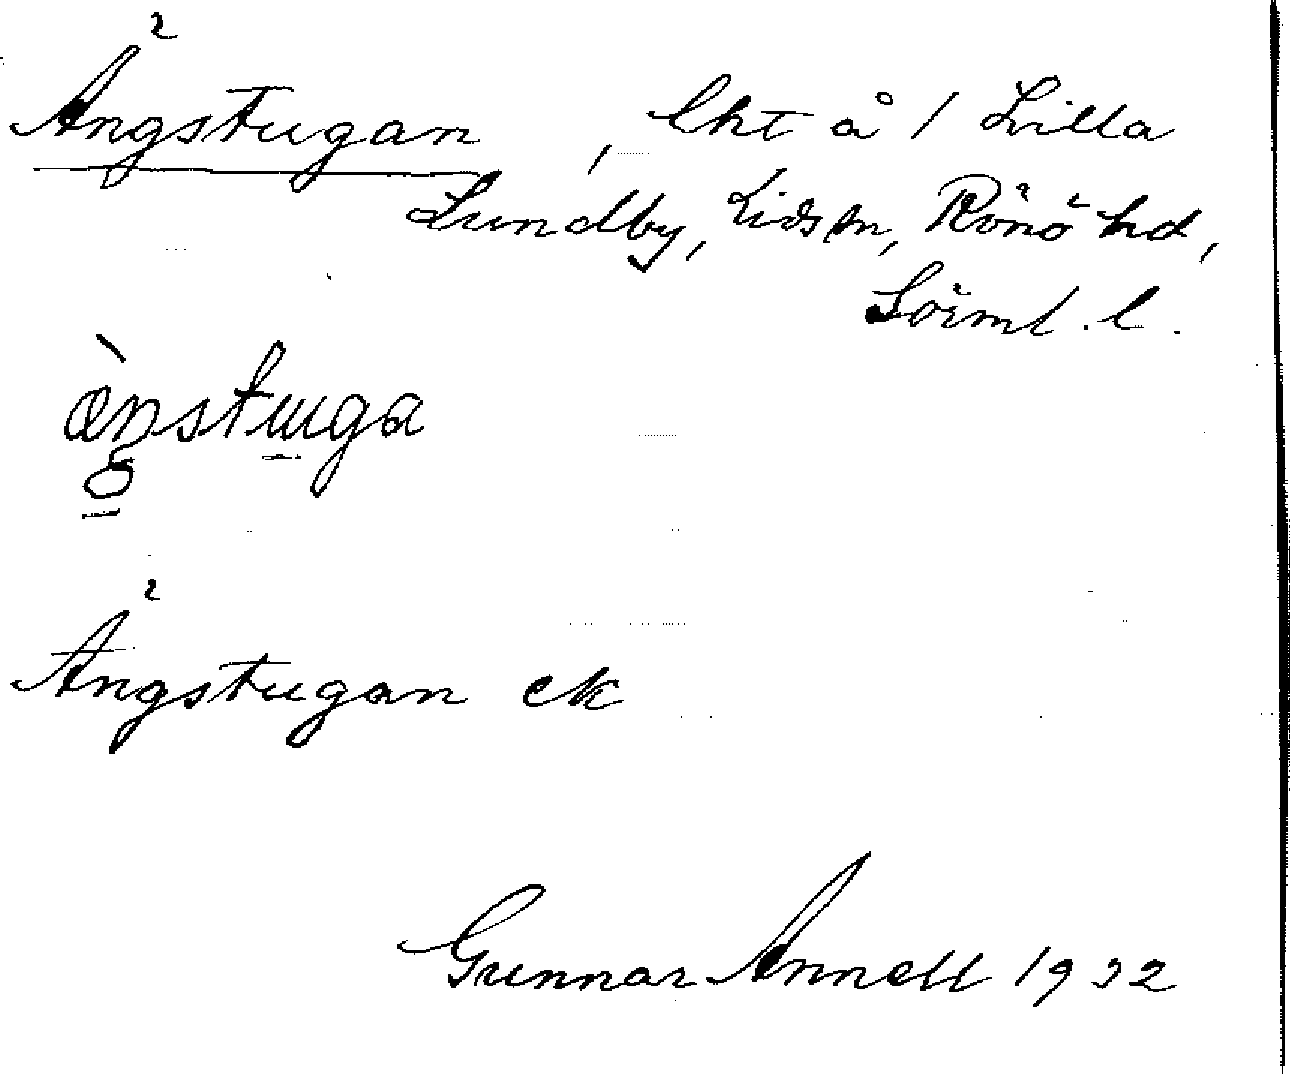 Ängstugan, lht å 1 Lilla
Lundby, Lids sn, Rönö hd,
Sörml. l.
ænstuga
Ängstugan ek
Gunnar Annell 1932